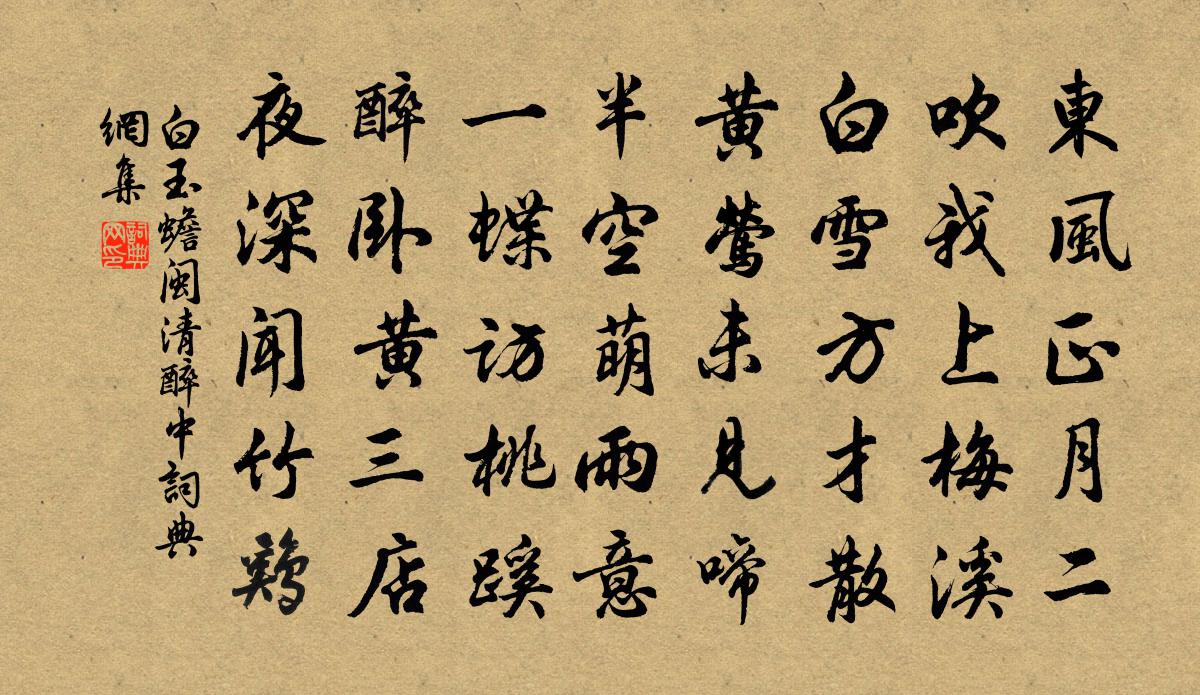 東風正月二
吹我上梅溪
白雪方才散
黄鶯未見啼
半空萌雨意
一蝶訪桃蹊
醉卧黄三店
夜深聞竹鷄
白玉蟾闽清醉中詞典
網集
詞典
网印